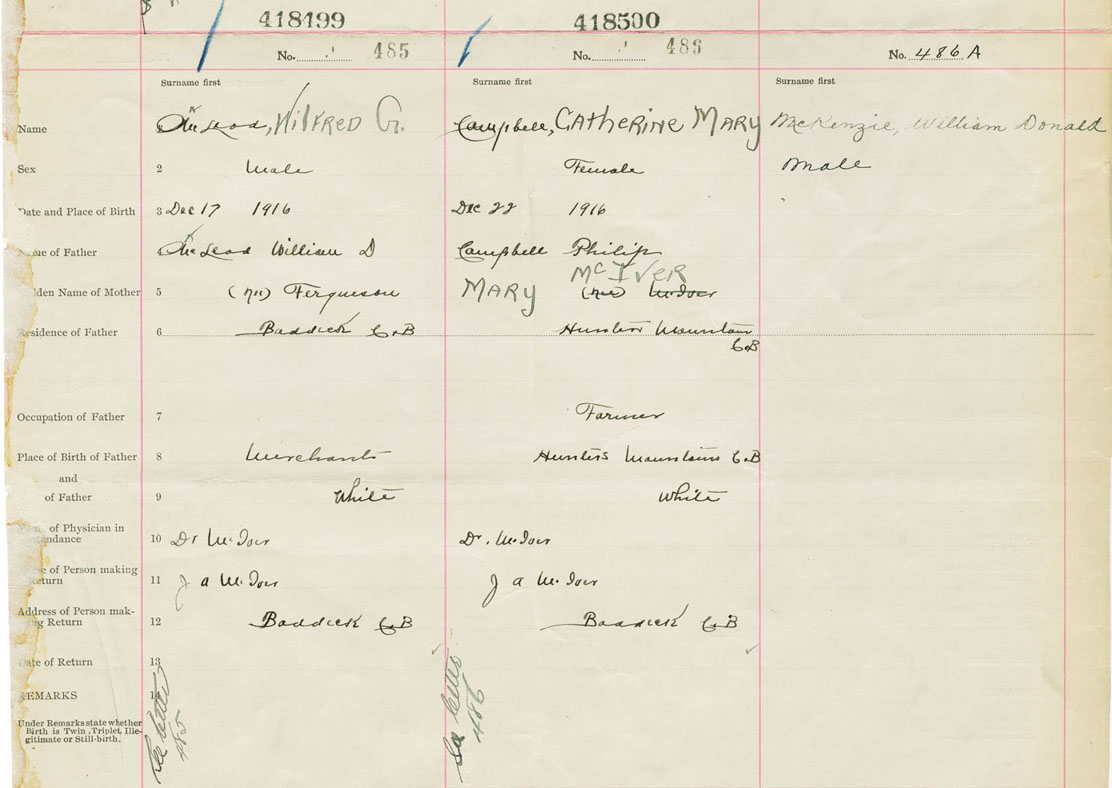 418499 418500
No. 485 No. 486 No. 486 A
Surname first Surname first Surname first
Name 1 McLeod, WilFRED G. Campbell, CATHERINE MARY McKenzie, William Donald
Sex 2 Male Female Male
Date and Place of Birth 3 Dec 17 1916 Dec 22 1916
me of Father 4 McLeod William D Campbell Philip
McIVER
iden Name of Mother 5 (nee) Ferguson MARY (nee) McIver
esidence of Father 6 Baddeck C.B Hunters Mountain
C.B
Occupation of Father 7 Farmer
Place of Birth of Father 8 Merchant Hunters Mountain C.B
and
of Father 9 White White
of Physician in
ndance 10 Dr McIver Dr. McIver
e of Person making
eturn 11 J A McIver J A McIver
Address of Person mak-
ng Return 12 Baddeck C.B Baddeck C.B
ate of Return 13
REMARKS 14
Under Remarks state whether
Birth is Twin, Triplet, Ille-
gitimate or Still-birth.
See letter
485
See letter
486